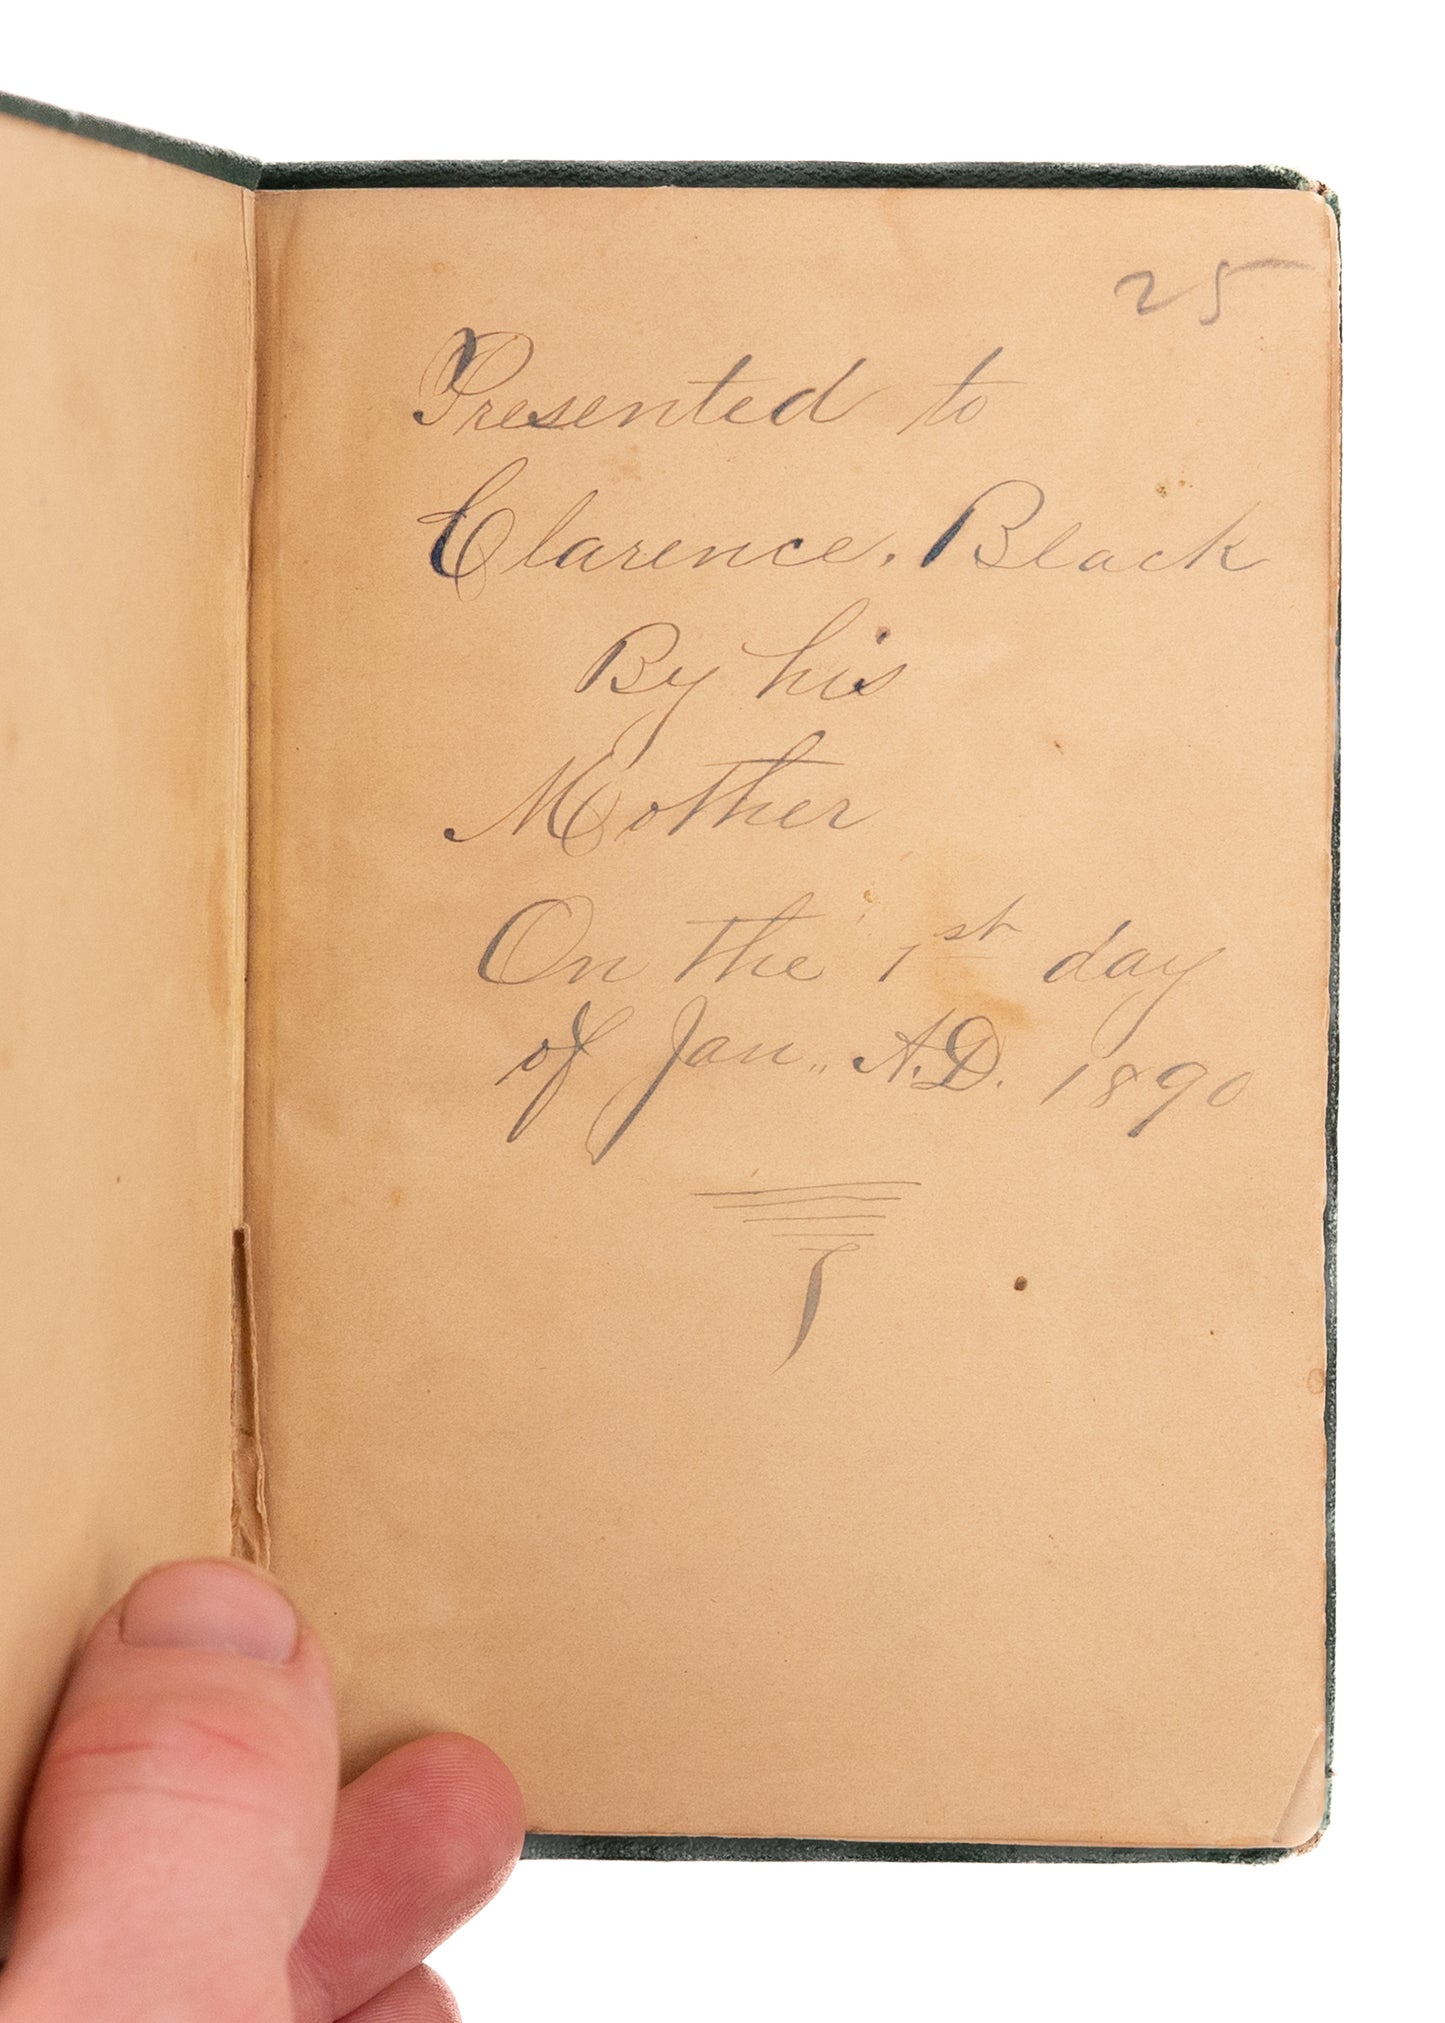 25
Presented to
Clarence. Black
By his
Mother
On the 1st day
of Jan,, A.D. 1890